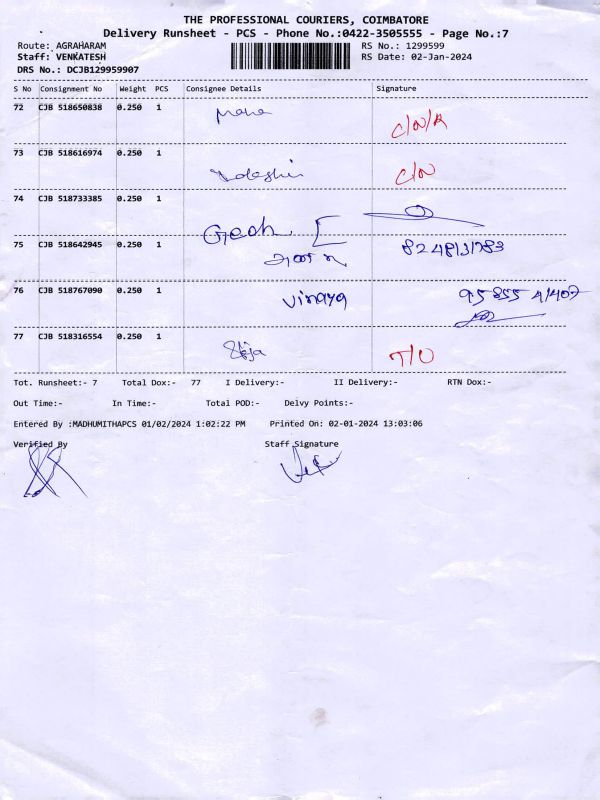 THE PROFESSIONAL COURIERS, COIMBATORE
Delivery Runsheet - PCS - Phone No.:0422-3505555 - Page No.:7
Route: AGRAHARAM RS No.: 1299599
Staff: VENKATESH RS Date: 02-Jan-2024
DRS No.: DCJB129959907
S No Consignment No Weight PCS Consignee Details Signature
72 CJB 518650838 0.250 1 C/N/R
73 CJB 518616974 0.250 1 C/N
74 CJB 518733385 0.250 1
75 CJB 518642945 0.250 1
76 CJB 518767090 0.250 1 Vinaya
77 CJB 518316554 0.250 1 T/O
Tot. Runsheet:- 7 Total Dox:- 77 I Delivery:- II Delivery:- RTN Dox:-
Out Time:- In Time:- Total POD:- Delvy Points:-
Entered By :MADHUMITHAPCS 01/02/2024 1:02:22 PM Printed On: 02-01-2024 13:03:06
Verified By Staff Signature